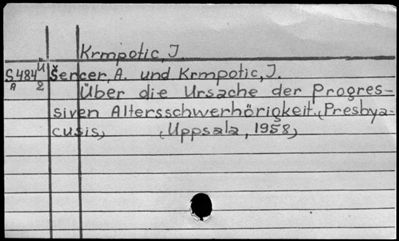 Krmpotic, J.
S484 ü Šercer, A. und Krmpotic, J.
A 2 Über die Ursache der Progres-
siven Altersschwerhörigkeit (Presbya-
cusis, (Uppsala, 1958,